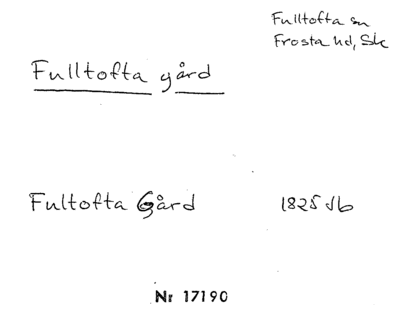 Fulltofta sn
Frosta hd, Sk
Fulltofta gård
Fultofta Gård 1825 Jb
Nr 17190